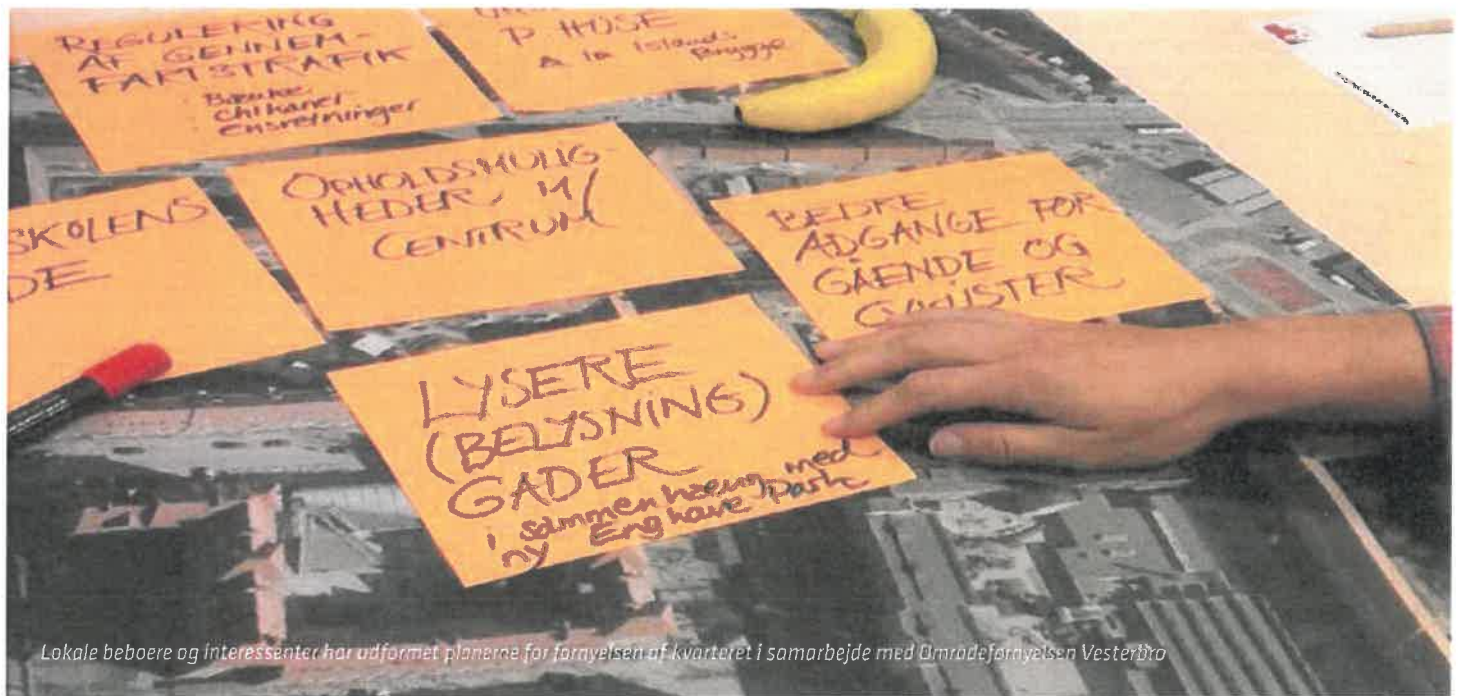 REGULERING
AF GENNEM-
FARTSTRAFIK
Bænke
chikaner
ensretninger
P HUSE
a la Islands
Brygge
SKOLENS
DE
OPHOLDSMULIG-
HEDER I/
CENTRUM
BEDRE
ADGANGE FOR
GÅENDE OG
CYKLISTER
LYSERE
(BELYSNING)
GADER
i sammenhæng med
ny Enghave Park
Lokale beboere og interessenter har udformet planerne for fornyelsen af kvarteret i samarbejde med Områdefornyelsen Vesterbro